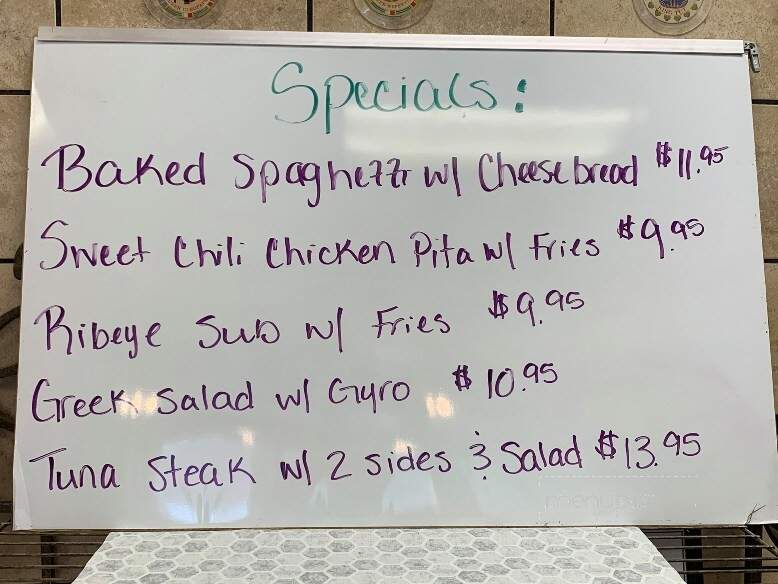 Specials:
Baked Spaghetti w/ Cheesebread $11.95
Sweet Chili Chicken Pita w/ Fries $9.95
Ribeye Sub w/ Fries $9.95
Greek Salad w/ Gyro $10.95
Tuna Steak w/ 2 sides & Salad $13.95